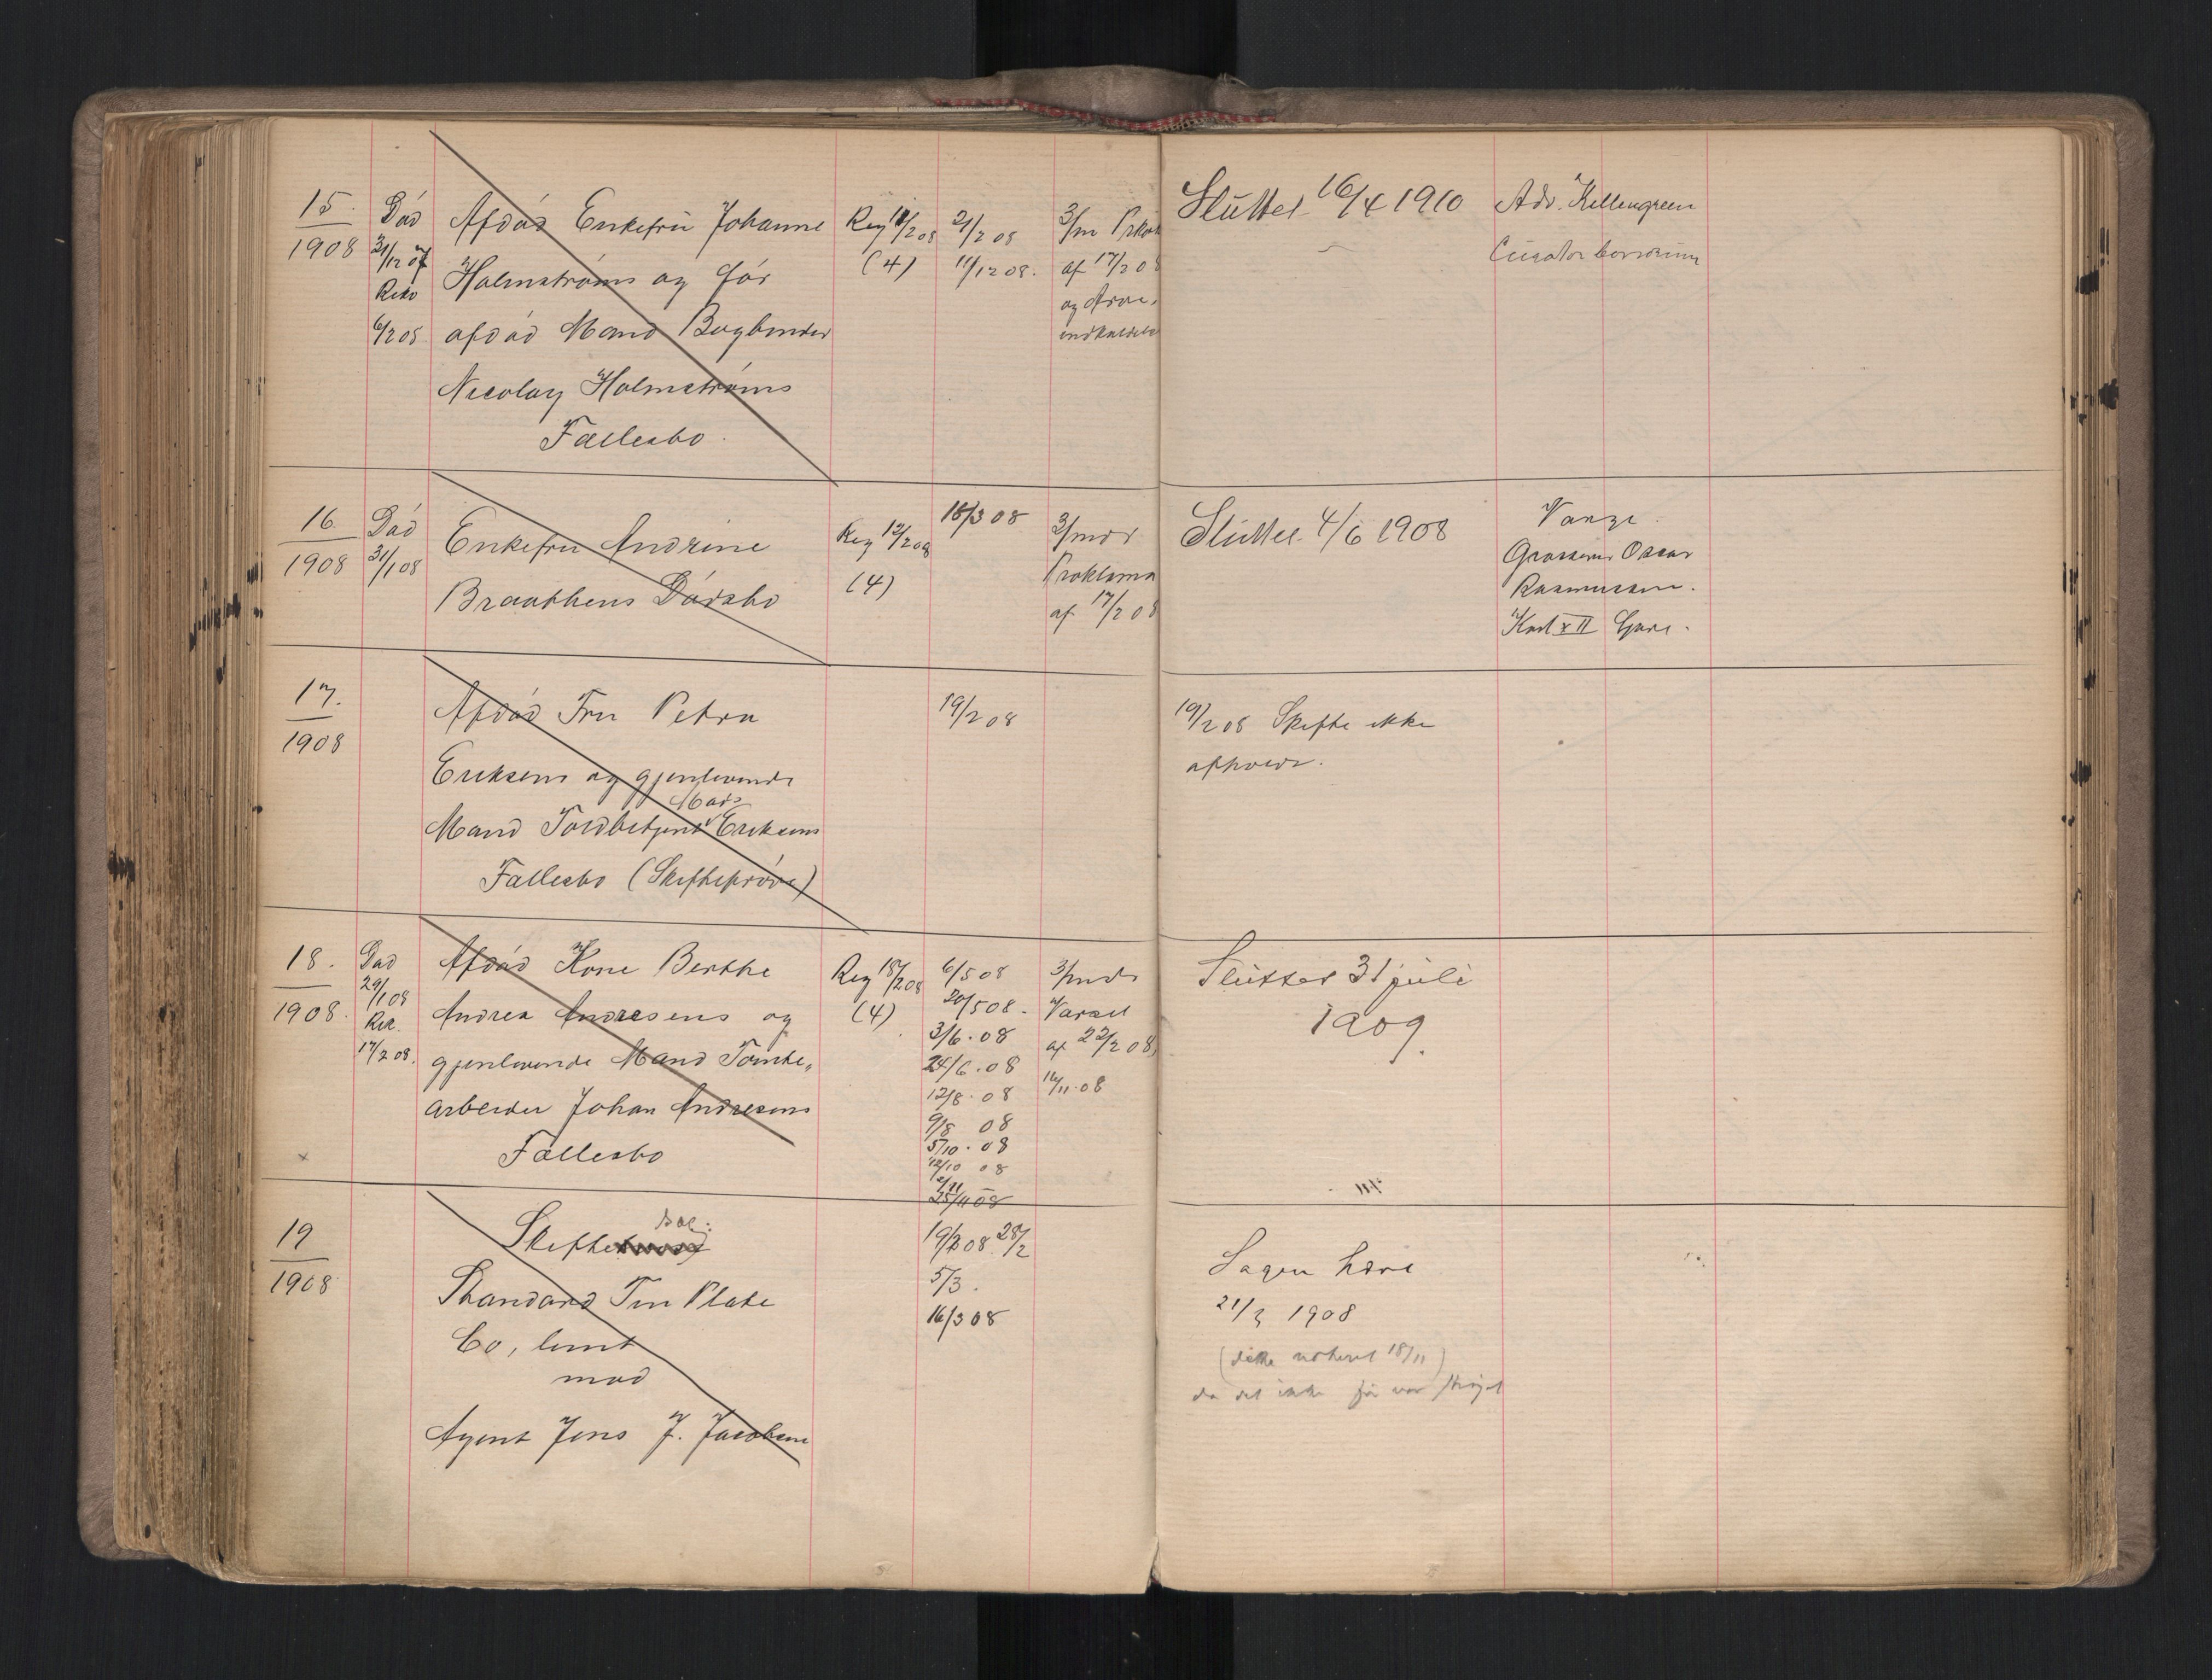 15.
1908
Död
31/12 07
Rekv
6/2 08
Afdöd Enkefru Johanne
Holmströms og för
afdöd Mand Bogbinder
Nicolay Holmströms
Fællesbo.
Reg 11/2 08
(4)
21/2 08
11/12 08.
3/m Prkl
af 17/2 08
og Arve,
indkaldelse
Sluttet 16/4 1910
Adv. Kellengreen
Curator bonorum
16
1908
Död
31/1 08
Enkefru Andrine
Braathens Dödsbo
Reg 12/2 08
(4)
18/3 08
3/mdr
Proklama
af 17/2 08
Sluttet 4/6 1908
Værge.
Grosserer Oscar
Rasmussen.
Karl XII Gade.
17.
1908
Afdöd Fru Petra
Eriksens og gjenlevende
Mads
Mand Toldbetjent Eriksens
Fællesbo (Skiftepröve)
19/2 08
19/2 08 Skifte ikke
afholdt.
18.
1908.
Död
29/1 08
Rek.
17/2 08.
Afdöd Kone Berthe
Andrea Andresens og
gjenlevende Mand Tomte,,
arbeider Johan Andresens
Fællesbo
Reg 18/2 08
(4)
6/5 08
20/5 08.
3/6. 08
24/6. 08
12/8. 08
9/8 08
5/10. 08
12/10 08
2/11
25/11 08
3/mdr
Varsel
af 22/2 08,
16/11. 08
Sluttet 31 juli
1909.
19
1908
Skifte
Sag:
Standard Tin Plate
Co, limt
mod
Agent Jens J. Jacobsen
19/2 08. 28/2
5/3.
16/3 08
Sagen hævet
21/3 1908
(dette noteret 18/11)
da det ikke för var skrejet